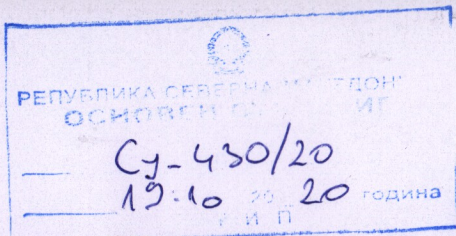 РЕПУБЛИКА СЕВЕРНА
ОСНОВЕН
Су-430/20
19.10 2020 година